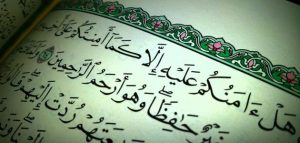 هَلْ ءَامَنُكُمْ عَلَيْهِ إِلَّا كَمَآ أَمِنتُكُمْ عَلَىٰٓ
خَيْرٌ حَٰفِظًا وَهُوَ أَرْحَمُ ٱلرَّٰحِمِينَ
رُدَّتْ إِلَيْهِمْ